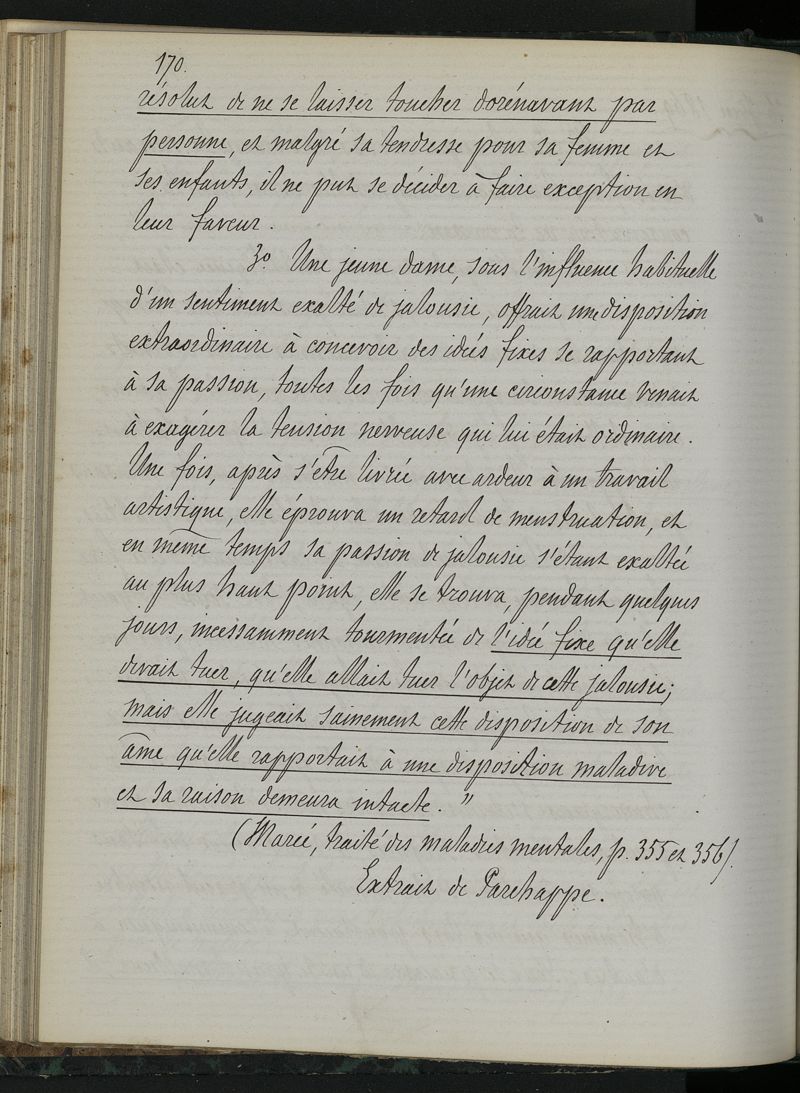 170.
résolut de ne se laisser toucher dorénavant par
personne, et malgré sa tendresse pour sa femme et
ses enfants, il ne put se décider à faire exception en
leur faveur.
3º. Une jeune dame, sous l'influence habituelle
d'un sentiment exalté de jalousie, offrait une disposition
extraordinaire à concevoir des idées fixes se rapportant
à sa passion, toutes les fois qu'une circonstance venait
à exagérer la tension nerveuse qui lui était ordinaire.
Une fois, après s'être livrée avec ardeur à un travail
artistique, elle éprouva un retard de menstruation, et
en même temps sa passion de jalousie s'étant exaltée
au plus haut point, elle se trouva, pendant quelques
jours, incessamment tourmentée de l'idée fixe qu'elle
devait tuer, qu'elle allait tuer l'objet de cette jalousie;
mais elle jugeait sainement cette disposition de son
âme qu'elle rapportait à une disposition maladive
et sa raison demeura intacte. "
(Marcé, traité des maladies mentales, p. 355 et 356).
Extrait de Parchappe.